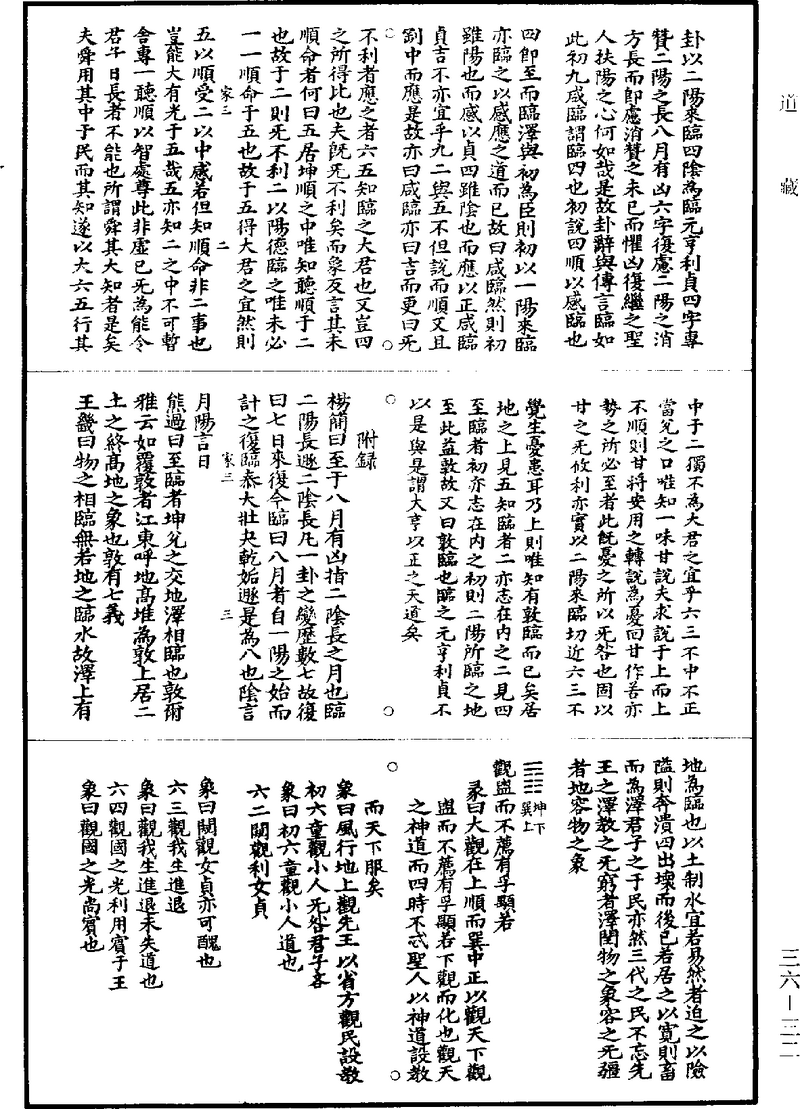 道藏
卦以二陽來臨四陰為臨元亨利貞四字專
贊二陽之長八月有凶六字復慮二陽之消
方長而即慮消贊之未已而懼凶復繼之聖
人扶陽之心何如哉是故卦辭與傳言臨如
此初九咸臨謂臨四也初說四順以感臨也
四即至而臨澤與初為臣則初以一陽來臨
亦臨之以感應之道而已故曰咸臨然則初
雖陽也而感以貞四雖陰也而應以正咸臨
貞吉不亦宜乎九二與五不但說而順又且
剛中而應是故亦曰咸臨亦曰吉而更曰无
不利者應之者六五知臨之大君也又豈四
之所得比也夫旣无不利矣而象反言其未
順命者何曰五居坤順之中唯知聽順于二
也故于二則无不利二以陽德臨之唯未必
一一順命于五也故于五得大君之宜然則
家三 二
五以順受二以中感若但知順命非二事也
豈能大有光于五哉五亦知二之中不可暫
舍專一聽順以智處尊此非虛己无為能令
君子日長者不能也所謂舜其大知者是矣
夫舜用其中于民而其知遂以大六五行其
中于二獨不為大君之宜乎六三不中不正
當兌之口唯知一味甘說夫求說于上而上
不順則甘將安用之轉說為憂回甘作苦亦
勢之所必至者此旣憂之所以无咎也固以
甘之无攸利亦實以二陽來臨切近六三不
覺生憂患耳乃上則唯知有敦臨而已矣居
地之上見五知臨者二亦志在內之二見四
至臨者初亦志在內之初則二陽所臨之地
至此益敦故又曰敦臨也臨之元亨利貞不
以是與是謂大亨以正之天道矣
附録
楊簡曰至于八月有凶指二陰長之月也臨
二陽長遯二陰長凡一卦之變歷數七故復
曰七日來復今臨曰八月者自一陽之始而
計之復臨泰大壯夬乾姤遯是為八也陰言
家三 三
月陽言日
熊過曰至臨者坤兌之交地澤相臨也敦爾
雅云如覆敦者江東呼地高堆為敦上居二
土之終高地之象也敦有七義
王畿曰物之相臨無若地之臨水故澤上有
地為臨也以土制水宜若易然者迫之以險
隘則奔潰四出壞而後已若居之以寬則畜
而為澤君子之于民亦然三代之民不忘先
王之澤教之无窮者澤閏物之象容之无疆
者地容物之象
䷓坤下巽上
觀盥而不薦有孚顒若
彖曰大觀在上順而巽中正以觀天下觀
盥而不薦有孚顒若下觀而化也觀天
之神道而四時不忒聖人以神道設教
而天下服矣
象曰風行地上觀先王以省方觀民設教
初六童觀小人无咎君子吝
象曰初六童觀小人道也
六二闚觀利女貞
象曰闚觀女貞亦可醜也
六三觀我生進退
象曰觀我生進退未失道也
六四觀國之光利用賓于王
象曰觀國之光尚賓也
三六—三二